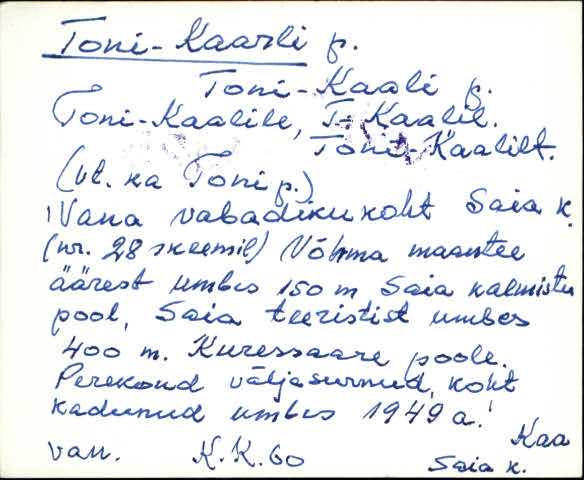 Toni-Kaarli p.
Toni-Kaali p.
Toni-Kaalile, T-Kaalil.
Toni-Kaalilt.
(vt. ka Toni p.)
Vana vabadikukoht Saia k.
(nr. 28 skeemil) Võhma maantee
äärest umbes 150 m Saia kalmistu
pool, Saia teeristist umbes
400 m. Kuressaare poole.
Perekond väljasurnud, koht
kadunud umbes 1949 a.
Kaa
van. K.K. 60
Saia k.